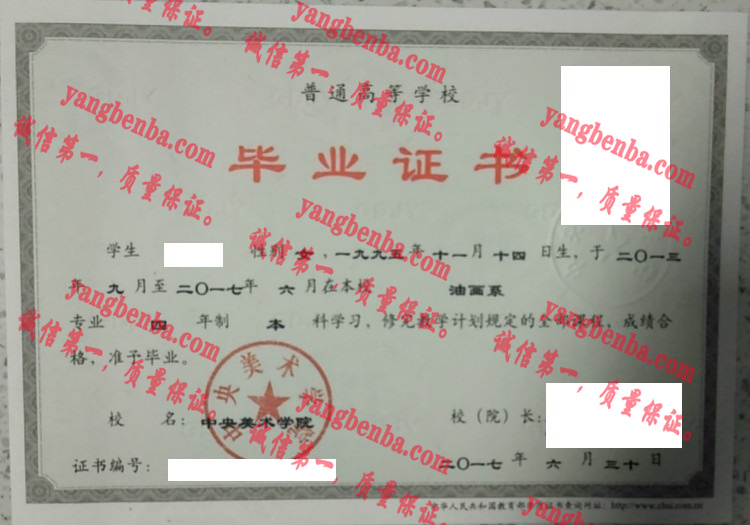 普通高等学校
毕业证书
学生 性别 女，一九九五年 十一月 十四 日生，于 二〇一三
年 九 月至 二〇一七年 六 月在本校 油画系
专业 四 年制 本 科学习，修完教学计划规定的全部课程，成绩合
格，准予毕业。
中央美术学院
校 名：中央美术学院 校（院）长：
证书编号： 二〇一七 年 六 月 三十 日
中华人民共和国教育部学历证书查询网址：http://www.chsi.com.cn
yangbenba.com
诚信第一，质量保证。
yangbenba.com
诚信第一，质量保证。
yangbenba.com
诚信第一，质量保证。
yangbenba.com
诚信第一，质量保证。
yangbenba.com
诚信第一，质量保证。
yangbenba.com
诚信第一，质量保证。
yangbenba.com
诚信第一，质量保证。
yangbenba.com
诚信第一，质量保证。
yangbenba.com
诚信第一，质量保证。